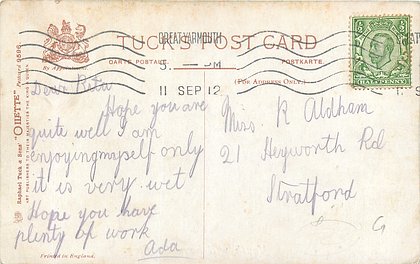 GREAT YARMOUTH
TUCK'S POST CARD
By Appointment.
CARTE POSTALE.
POSTKARTE.
(FOR ADDRESS ONLY.)
11 SEP 12
HALFPENNY
Raphael Tuck & Sons' "OILETTE" Postcard 9596.
ART PUBLISHERS TO THEIR MAJESTIES THE KING & QUEEN.
Dear Rita
Hope you are
quite well I am
enjoying myself only
it is very wet
Hope you have
plenty of work
Ada
Miss R Aldham
21 Heyworth Rd
Stratford
Printed in England.